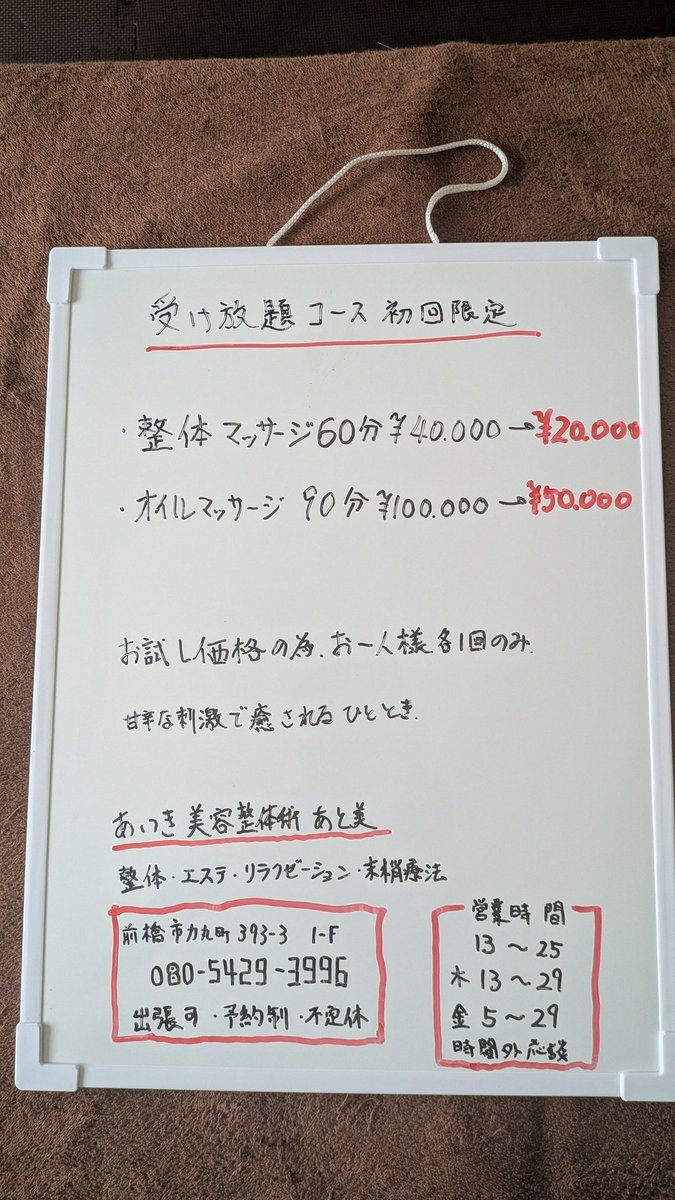 受け放題コース 初回限定
・整体マッサージ60分 ¥40.000→¥20.000
・オイルマッサージ 90分 ¥100.000→¥50.000
お試し価格の為、お一人様各1回のみ.
甘辛な刺激で癒されるひととき.
あいつき 美容整体術 あと美
整体・エステ・リラクゼーション・末梢療法
前橋市力丸町393-3 1-F
080-5429-3996
出張可・予約制・不定休
営業時間
13～25
木 13～29
金 5～29
時間外応談